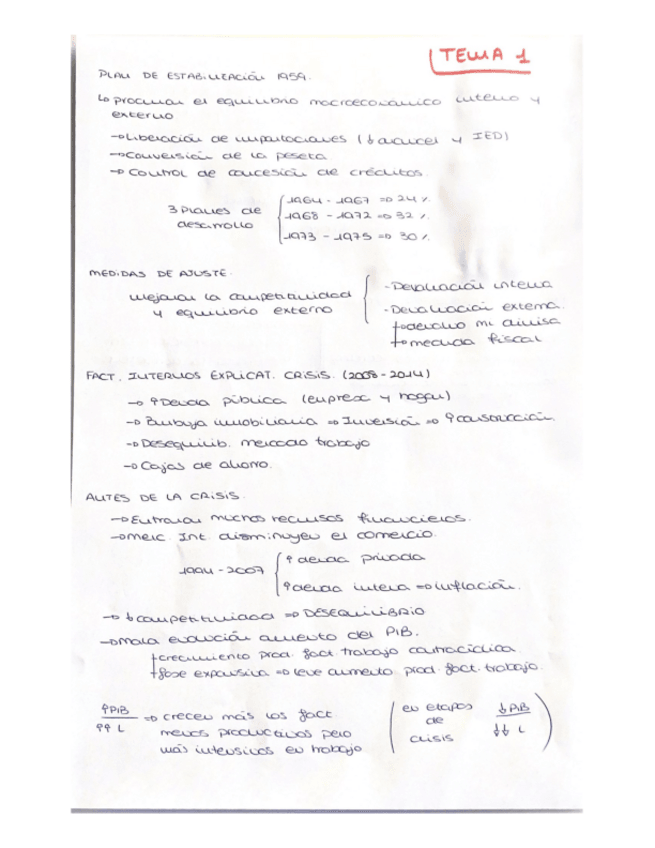 TEMA 1
PLAN DE ESTABILIZACIÓN 1959.
↳ procuran el equilibrio macroeconómico interno y
externo
→ Liberación de importaciones (↓ arancel y IED)
→ Conversión de la peseta.
→ Control de concesión de créditos.
3 Planes de
desarrollo
1964 - 1967 ⇒ 24 %
1968 - 1972 ⇒ 32 %
1973 - 1975 ⇒ 30 %
MEDIDAS DE AJUSTE.
mejoran la competitividad
y equilibrio externo
- Devaluación interna
- Devaluación externa.
→ devalúo mi divisa
→ medida fiscal
FACT. INTERNOS EXPLICAT. CRISIS. (2008 - 2014)
→ ↑ Deuda pública (empresx y hogar)
→ Burbuja inmobiliaria ⇒ Inversión ⇒ ↑ construcción.
→ Desequilib. mercado trabajo
→ Cajas de ahorro.
ANTES DE LA CRISIS.
→ Entraron muchos recursos financieros.
→ Merc. Int. disminuyen el comercio.
1994 - 2007
↑ deuda privada
↑ deuda interna ⇒ Inflación.
→ ↓ competitividad ⇒ DESEQUILIBRIO
→ Mala evolución aumento del PIB.
→ crecimiento prod. fact. trabajo contracíclica.
→ fase expansiva ⇒ leve aumento prod. fact. trabajo.
↑PIB
↑↑ L
⇒ crecen más los fact.
menos productivos pero
más intensivos en trabajo
(en etapas
de
crisis
↓ PIB
↓↓ L)